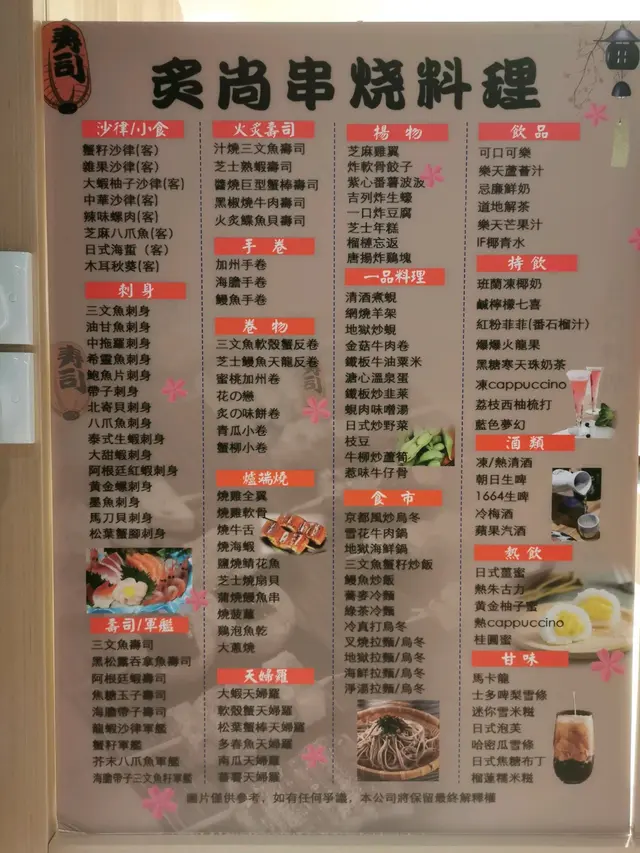 寿司
炙尚串烧料理
沙律/小食
蟹籽沙律(客)
雜果沙律(客)
大蝦柚子沙律(客)
中華沙律(客)
辣味螺肉(客)
芝麻八爪魚(客)
日式海蜇(客)
木耳秋葵(客)
刺身
三文魚刺身
油甘魚刺身
中拖羅刺身
希靈魚刺身
鮑魚片刺身
帶子刺身
北寄貝刺身
八爪魚刺身
泰式生蝦刺身
大甜蝦刺身
阿根廷紅蝦刺身
黃金螺刺身
墨魚刺身
馬刀貝刺身
松葉蟹腳刺身
壽司/軍艦
三文魚壽司
黑松露吞拿魚壽司
阿根廷蝦壽司
焦糖玉子壽司
海膽帶子壽司
龍蝦沙律軍艦
蟹籽軍艦
芥末八爪魚軍艦
海膽帶子三文魚籽軍艦
火炙壽司
汁燒三文魚壽司
芝士熟蝦壽司
醬燒巨型蟹棒壽司
黑椒燒牛肉壽司
火炙鰈魚貝壽司
手卷
加州手卷
海膽手卷
鰻魚手卷
卷物
三文魚軟殼蟹反卷
芝士鰻魚天龍反卷
蜜桃加州卷
花の戀
炙の味餅卷
青瓜小卷
蟹柳小卷
爐端燒
燒雞全翼
燒雞軟骨
燒牛舌
燒海蝦
鹽燒鯖花魚
芝士燒扇貝
蒲燒鰻魚串
燒菠蘿
鷄泡魚乾
大蔥燒
天婦羅
大蝦天婦羅
軟殼蟹天婦羅
松葉蟹棒天婦羅
多春魚天婦羅
南瓜天婦羅
蕃薯天婦羅
揚物
芝麻雞翼
炸軟骨餃子
紫心番薯波波
吉列炸生蠔
一口炸豆腐
芝士年糕
榴槤忘返
唐揚炸鷄塊
一品料理
清酒煮蜆
網燒羊架
地獄炒蜆
金菇牛肉卷
鐵板牛油粟米
溏心溫泉蛋
鐵板炒韭菜
蜆肉味噌湯
日式炒野菜
枝豆
牛柳炒蘆筍
惹味牛仔骨
食市
京都風炒烏冬
雪花牛肉鍋
地獄海鮮鍋
三文魚蟹籽炒飯
鰻魚炒飯
蕎麥冷麵
綠茶冷麵
冷真打烏冬
叉燒拉麵/烏冬
地獄拉麵/烏冬
海鮮拉麵/烏冬
淨湯拉麵/烏冬
飲品
可口可樂
樂天蘆薈汁
忌廉鮮奶
道地解茶
樂天芒果汁
IF椰青水
特飲
班蘭凍椰奶
鹹檸檬七喜
紅粉菲菲(番石榴汁)
爆爆火龍果
黑糖寒天珠奶茶
凍cappuccino
荔枝西柚梳打
藍色夢幻
酒類
凍/熱清酒
朝日生啤
1664生啤
冷梅酒
蘋果汽酒
熱飲
日式薑蜜
熱朱古力
黃金柚子蜜
熱cappuccino
桂圓蜜
甘味
馬卡龍
士多啤梨雪條
迷你雪米糍
日式泡芙
哈密瓜雪條
日式焦糖布丁
榴蓮糯米糍
圖片僅供參考，如有任何爭議，本公司將保留最終解釋權